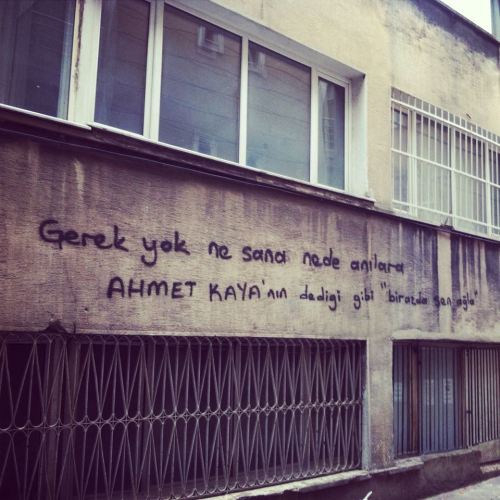 Gerek yok ne sana nede anılara
AHMET KAYA'nın dediği gibi "birazda sen ağla"